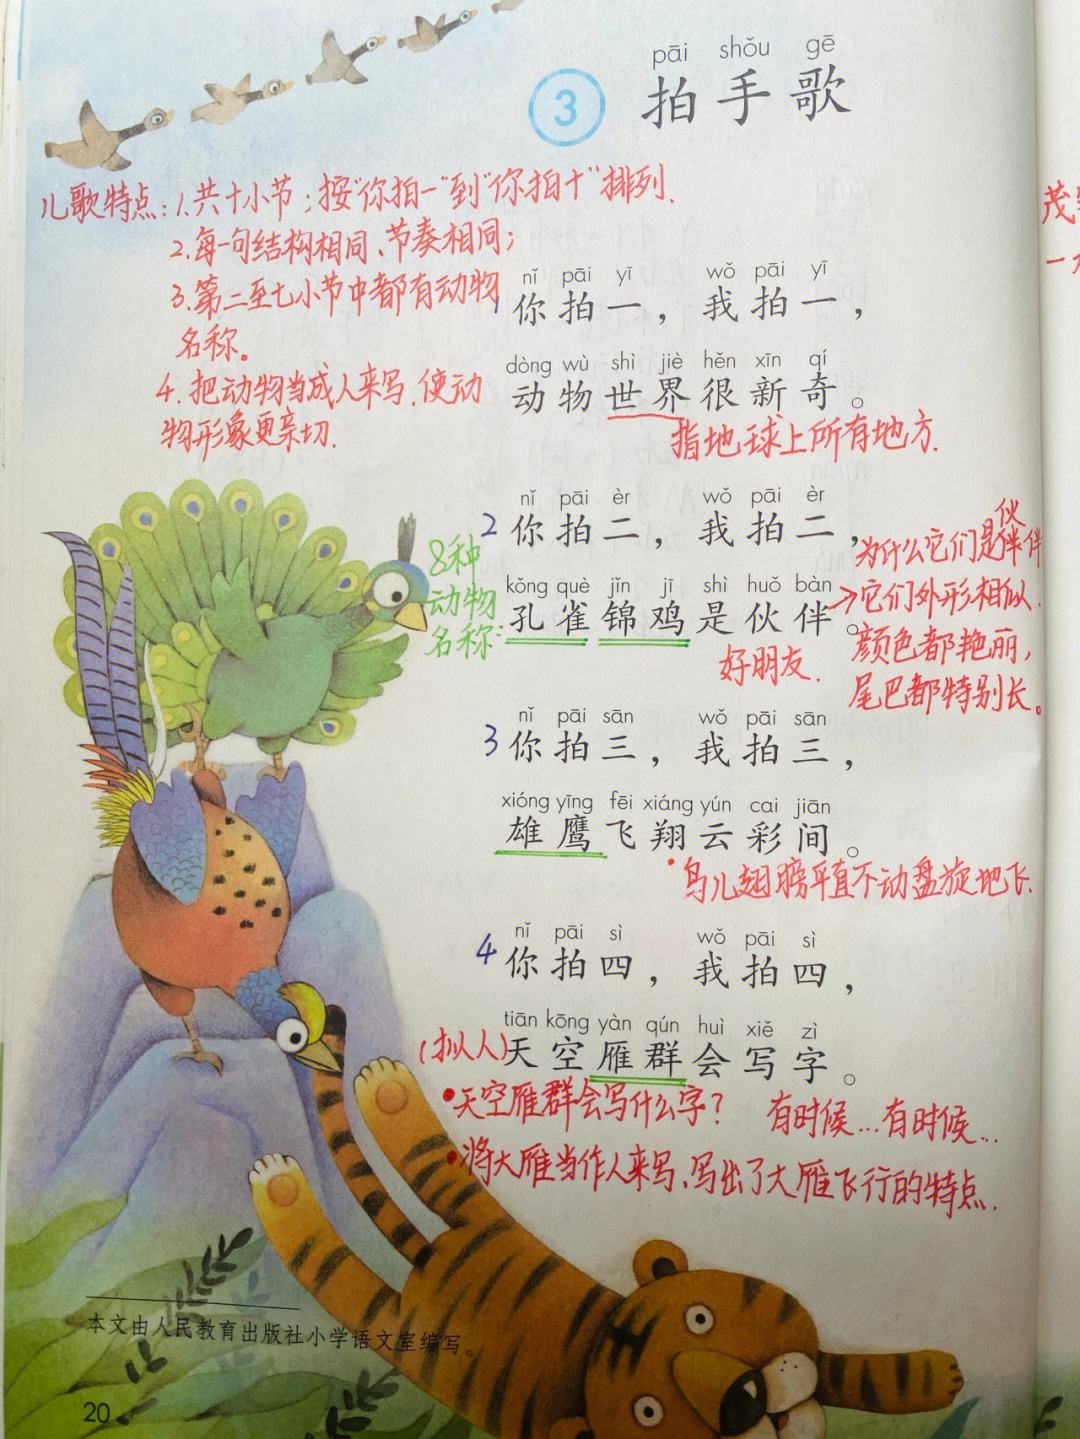 pāi shǒu gē
3 拍手歌
儿歌特点:1.共十小节;按“你拍一”到“你拍十”排列.
2.每一句结构相同、节奏相同;
3.第二至七小节中都有动物
名称。
4.把动物当成人来写.使动
物形象更亲切.
nǐ pāi yī wǒ pāi yī
1 你拍一，我拍一，
dòng wù shì jiè hěn xīn qí
动物世界很新奇。
指地球上所有地方.
nǐ pāi èr wǒ pāi èr
2 你拍二，我拍二，
kǒng què jǐn jī shì huǒ bàn
孔雀锦鸡是伙伴。
8种
动物
名称:
好朋友.
为什么它们是伙伴
它们外形相似.
颜色都艳丽,
尾巴都特别长。
nǐ pāi sān wǒ pāi sān
3 你拍三，我拍三，
xióng yīng fēi xiáng yún cai jiān
雄鹰飞翔云彩间。
•鸟儿翅膀平直不动盘旋地飞.
nǐ pāi sì wǒ pāi sì
4 你拍四，我拍四，
tiān kōng yàn qún huì xiě zì
(拟人)天空雁群会写字。
•天空雁群会写什么字? 有时候…有时候…
•将大雁当作人来写、写出了大雁飞行的特点.
本文由人民教育出版社小学语文室编写。
20
茂
一